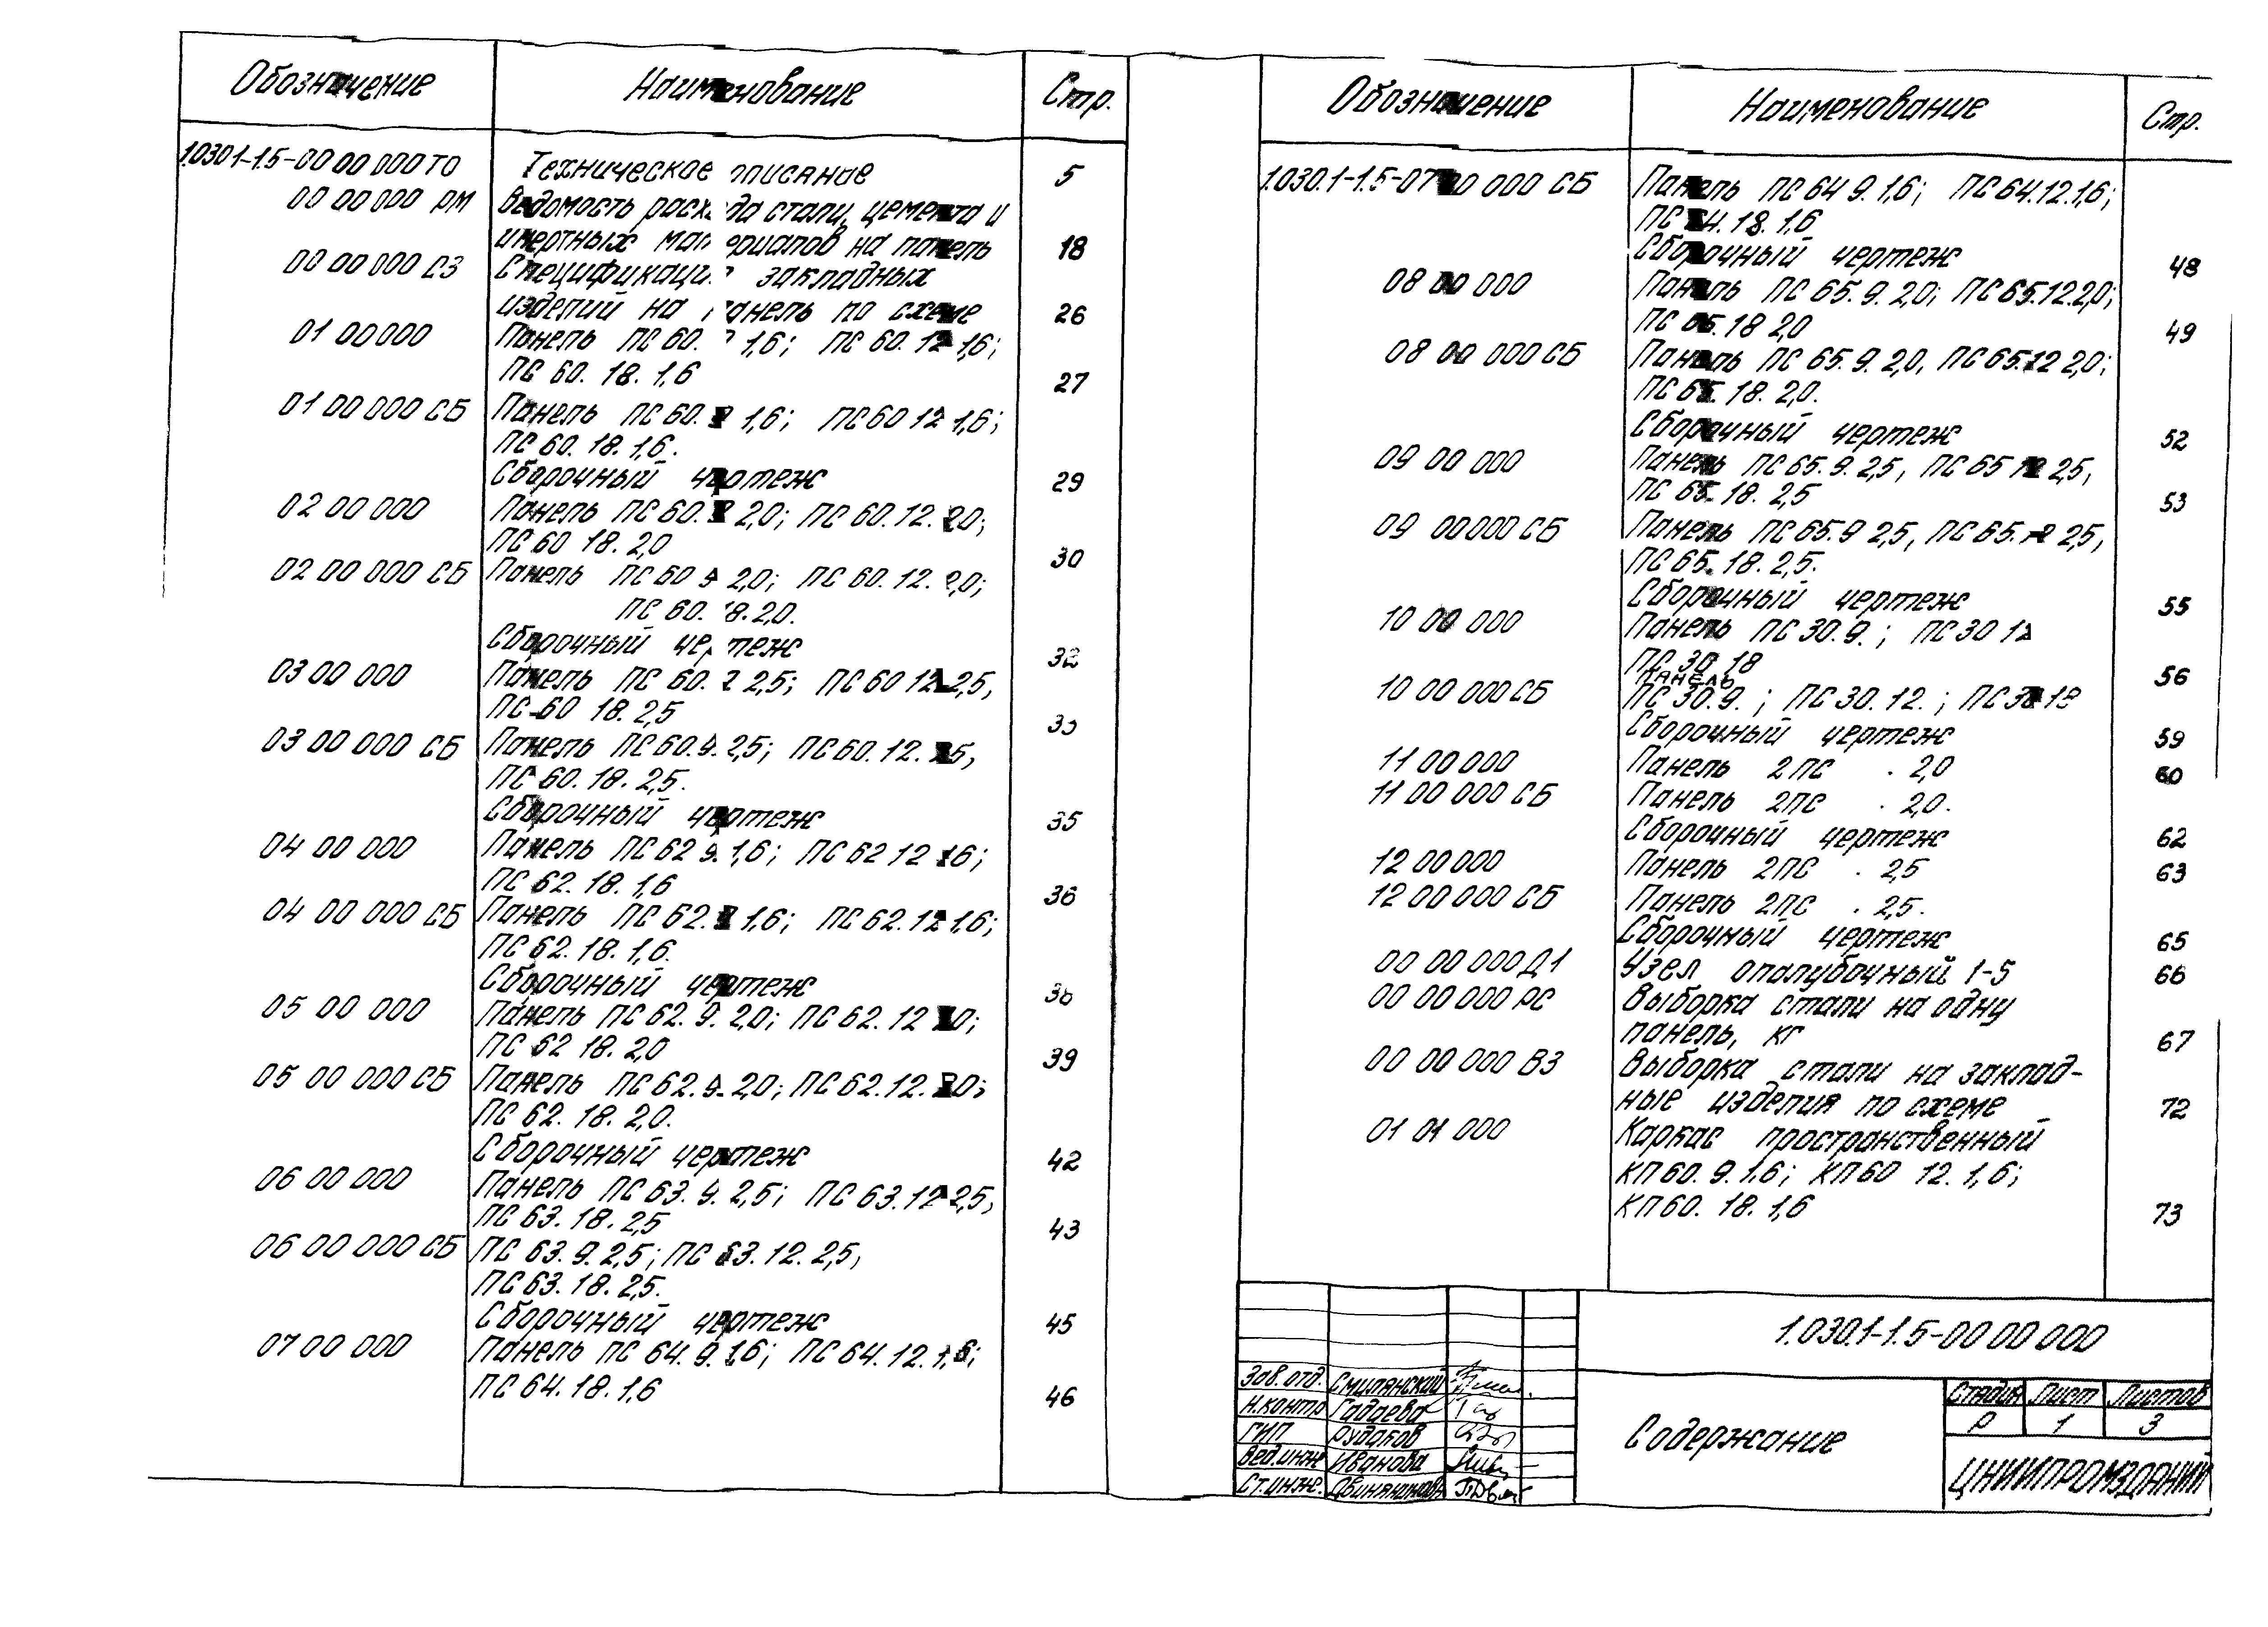 Обозначение Наименование Стр.
1.030.1-1.5-00 00 000 ТО Техническое описание 5
00 00 000 РМ Ведомость расхода стали, цемента и
инертных материалов на панель 18
00 00 000 СЗ Спецификация закладных
изделий на панель по схеме 26
01 00 000 Панель ПС 60. 9 1,6; ПС 60. 12 1,6;
ПС 60. 18. 1,6 27
01 00 000 СБ Панель ПС 60. 9 1,6; ПС 60 12 1,6;
ПС 60. 18. 1,6.
Сборочный чертеж 29
02 00 000 Панель ПС 60. 9 2,0; ПС 60. 12. 2,0;
ПС 60 18. 2,0 30
02 00 000 СБ Панель ПС 60 9 2,0; ПС 60. 12. 2,0;
ПС 60. 18. 2,0.
Сборочный чертеж 32
03 00 000 Панель ПС 60. 9 2,5; ПС 60 12 2,5,
ПС 60 18. 2,5
03 00 000 СБ Панель ПС 60. 9. 2,5; ПС 60. 12. 2,5,
ПС 60. 18. 2,5.
Сборочный чертеж 35
04 00 000 Панель ПС 62 9. 1,6; ПС 62 12 1,6;
ПС 62. 18. 1,6 36
04 00 000 СБ Панель ПС 62. 9 1,6; ПС 62. 12 1,6;
ПС 62. 18. 1,6.
Сборочный чертеж 38
05 00 000 Панель ПС 62. 9. 2,0; ПС 62. 12 2,0;
ПС 62 18. 2,0 39
05 00 000 СБ Панель ПС 62. 9. 2,0; ПС 62. 12. 2,0;
ПС 62. 18. 2,0.
Сборочный чертеж 42
06 00 000 Панель ПС 63. 9. 2,5; ПС 63. 12 2,5,
ПС 63. 18. 2,5 43
06 00 000 СБ ПС 63. 9. 2,5; ПС 63. 12. 2,5,
ПС 63. 18. 2,5.
Сборочный чертеж 45
07 00 000 Панель ПС 64. 9. 1,6; ПС 64. 12. 1,6;
ПС 64. 18. 1,6 46
Обозначение Наименование Стр.
1.030.1-1.5-07 00 000 СБ Панель ПС 64 9. 1,6; ПС 64. 12. 1,6;
ПС 64. 18. 1,6
Сборочный чертеж 48
08 00 000 Панель ПС 65. 9. 2,0; ПС 65. 12. 2,0;
ПС 65. 18 2,0 49
08 00 000 СБ Панель ПС 65. 9. 2,0, ПС 65. 12 2,0;
ПС 65. 18. 2,0.
Сборочный чертеж 52
09 00 000 Панель ПС 65. 9. 2,5, ПС 65 12 2,5,
ПС 65. 18. 2,5 53
09 00 000 СБ Панель ПС 65. 9 2,5, ПС 65. 12 2,5,
ПС 65. 18. 2,5.
Сборочный чертеж 55
10 00 000 Панель ПС 30. 9. ; ПС 30 12
ПС 30 18 56
Панель
10 00 000 СБ ПС 30. 9. ; ПС 30. 12. ; ПС 30 18
Сборочный чертеж 59
11 00 000 Панель 2ПС . 2,0 60
11 00 000 СБ Панель 2ПС . 2,0.
Сборочный чертеж 62
12 00 000 Панель 2ПС . 2,5 63
12 00 000 СБ Панель 2ПС . 2,5.
Сборочный чертеж 65
00 00 000 Д1 Узел опалубочный 1-5 66
00 00 000 РС Выборка стали на одну
панель, кг 67
00 00 000 ВЗ Выборка стали на заклад-
ные изделия по схеме 72
01 01 000 Каркас пространственный
КП 60. 9. 1,6; КП 60 12. 1,6;
КП 60. 18. 1,6 73
1.030.1-1.5-00 00 000
Зав. отд. Смилянский
Н. контр Гадаева
ГИП Рудаков
Вед. инж Иванова
Ст. инж.
Содержание
Стадия Лист Листов
Р 1 3
ЦНИИПРОМЗДАНИЙ